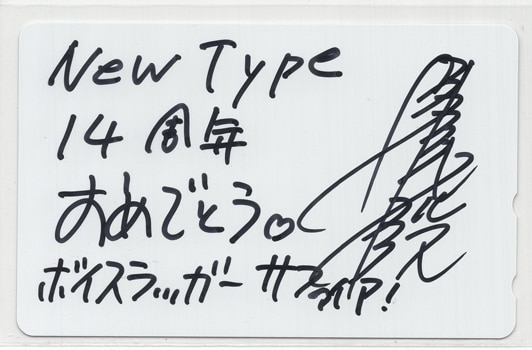 New Type
14周年
おめでとう♡
ボイスラッガー サファイア!